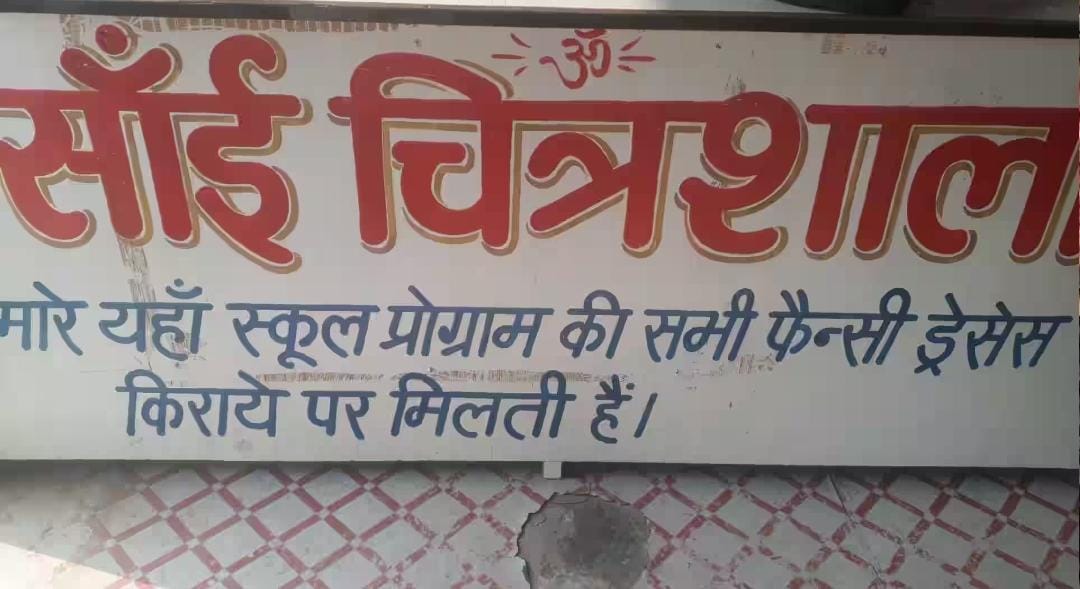 ॐ
साँई चित्रशाल
मारे यहाँ स्कूल प्रोग्राम की सभी फैन्सी ड्रेसेस
किराये पर मिलती हैं।